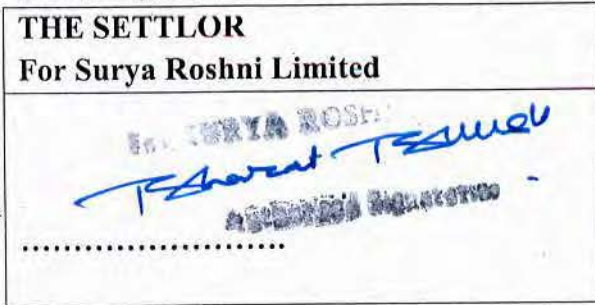 THE SETTLOR
For Surya Roshni Limited
For SURYA ROSH
Bharat
Signatories
........................